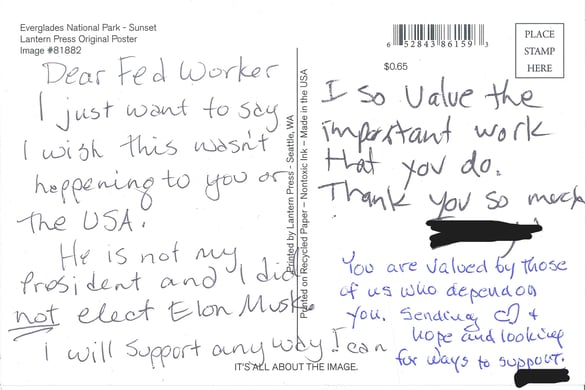 Everglades National Park - Sunset
Lantern Press Original Poster
Image #81882
6 52843 86159 3
$0.65
PLACE
STAMP
HERE
Dear Fed Worker
I just want to say
I wish this wasn't
happening to you or
the USA.
He is not my
President and I did
not elect Elon Musk.
I will support any way I can
Printed by Lantern Press - Seattle, WA
Printed on Recycled Paper - Nontoxic Ink - Made in the USA
I so value the
important work
that you do.
Thank you so much
You are valued by those
of us who depend on
you. Sending ♡ +
hope and looking
for ways to support.
IT'S ALL ABOUT THE IMAGE.